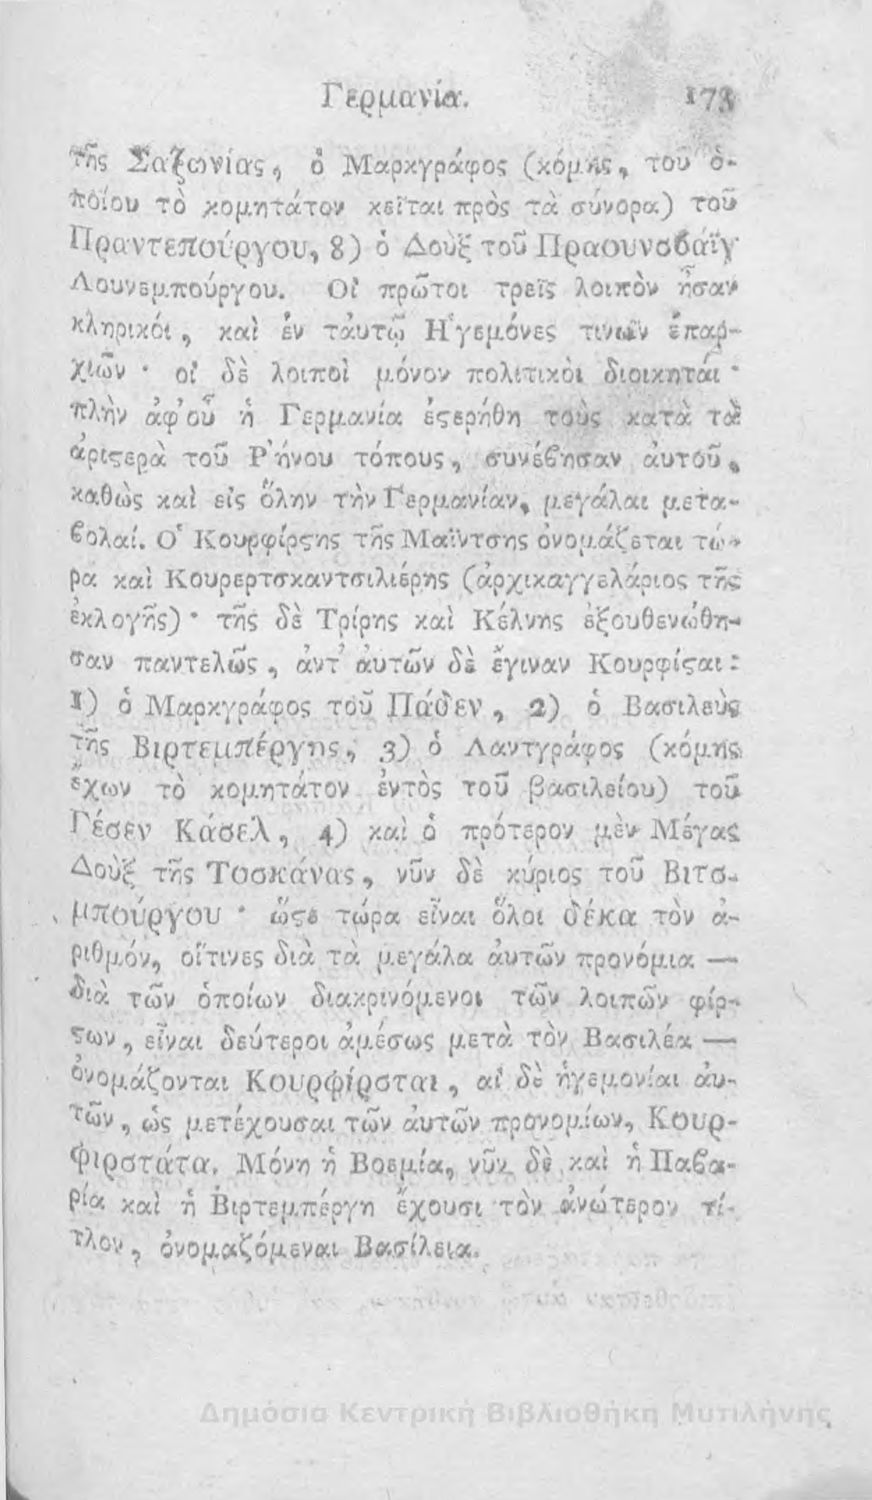 Γερμανία. 173
τῆς Σαξωνίας, ὁ Μαρκγράφος (κόμης, τοῦ ὁ-
ποίου τὸ κομητάτον κεῖται πρὸς τὰ σύνορα) τοῦ
Πραντεπούργου, 8) ὁ Δοὺξ τοῦ Πραουνσϐαΐγ
Λουνεμπούργου. Οἱ πρῶτοι τρεῖς λοιπὸν ἦσαν
κληρικοί, καὶ ἐν τἀυτῷ Ἡγεμόνες τινῶν ἐπαρ-
χιῶν · οἱ δὲ λοιποὶ μόνον πολιτικοὶ διοικηταί ·
πλὴν ἀφ᾽οὗ ἡ Γερμανία ἐϛερήθη τοὺς κατὰ τὰ
ἀριϛερὰ τοῦ Ῥήνου τόπους, συνέϐησαν ἀυτοῦ,
καθὼς καὶ εἰς ὅλην τὴν Γερμανίαν, μεγάλαι μετα-
ϐολαί. Ὁ Κουρφίρϛης τῆς Μαΐντσης ὀνομάζεται τώ-
ρα καὶ Κουρερτσκαντσιλιέρης (ἀρχικαγγελάριος τῆς
ἐκλογῆς) · τῆς δὲ Τρίρης καὶ Κέλνης ἐξουθενώθη-
σαν παντελῶς, ἀντ᾽ ἀυτῶν δὲ ἔγιναν Κουρφίϛαι :
1) ὁ Μαρκγράφος τοῦ Πάδεν, 2) ὁ Βασιλεὺς
τῆς Βιρτεμπέργης, 3) ὁ Λαντγράφος (κόμης
ἔχων τὸ κομητάτον ἐντὸς τοῦ βασιλείου) τοῦ
Γέσεν Κάσελ, 4) καὶ ὁ πρότερον μὲν Μέγας
Δοὺξ τῆς Τοσκάνας, νῦν δὲ κύριος τοῦ Βιτσ-
μπούργου · ὥϛε τώρα εἶναι ὅλοι δέκα τὸν ἀ-
ριθμόν, οἵτινες διὰ τὰ μεγάλα ἀυτῶν προνόμια —
διὰ τῶν ὁποίων διακρινόμενοι τῶν λοιπῶν φίρ-
ϛων, εἶναι δεύτεροι ἀμέσως μετὰ τὸν Βασιλέα —
ὀνομάζονται Κουρφίρσται, αἱ δὲ ἡγεμονίαι ἀυ-
τῶν, ὡς μετέχουσαι τῶν ἀυτῶν προνομίων, Κουρ-
φιρστάτα. Μόνη ἡ Βοεμία, νῦν δὲ καὶ ἡ Παϐα-
ρία καὶ ἡ Βιρτεμπέργη ἔχουσι τὸν ἀνώτερον τί-
τλον, ὀνομαζόμεναι Βασίλεια.
Δημόσια Κεντρική Βιβλιοθήκη Μυτιλήνης